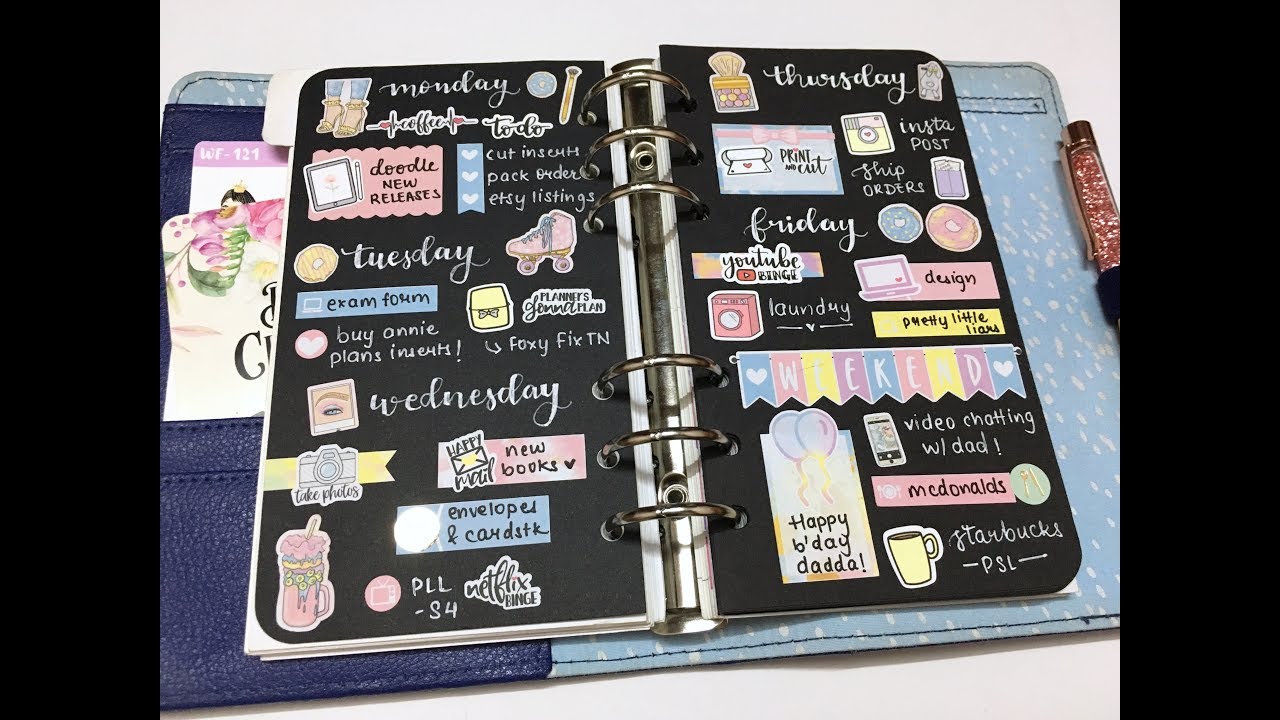 WF-121
monday
coffee
to do
doodle
NEW
RELEASES
cut inserts
pack orders
etsy listings
tuesday
exam form
buy annie
plans inserts!
PLANNER'S
gonna
PLAN
↳ foxy fix TN
wednesday
take photos
HAPPY
mail
new
books ♥
envelopes
& cardstk
PLL
-S4
netflix
BINGE
thursday
PRINT
AND
CUT
insta
POST
ship
ORDERS
friday
youtube
BINGE
design
laundry
pretty little
liars
WEEKEND
Happy
b'day
dadda!
video chatting
w/ dad!
mcdonalds
starbucks
-PSL-